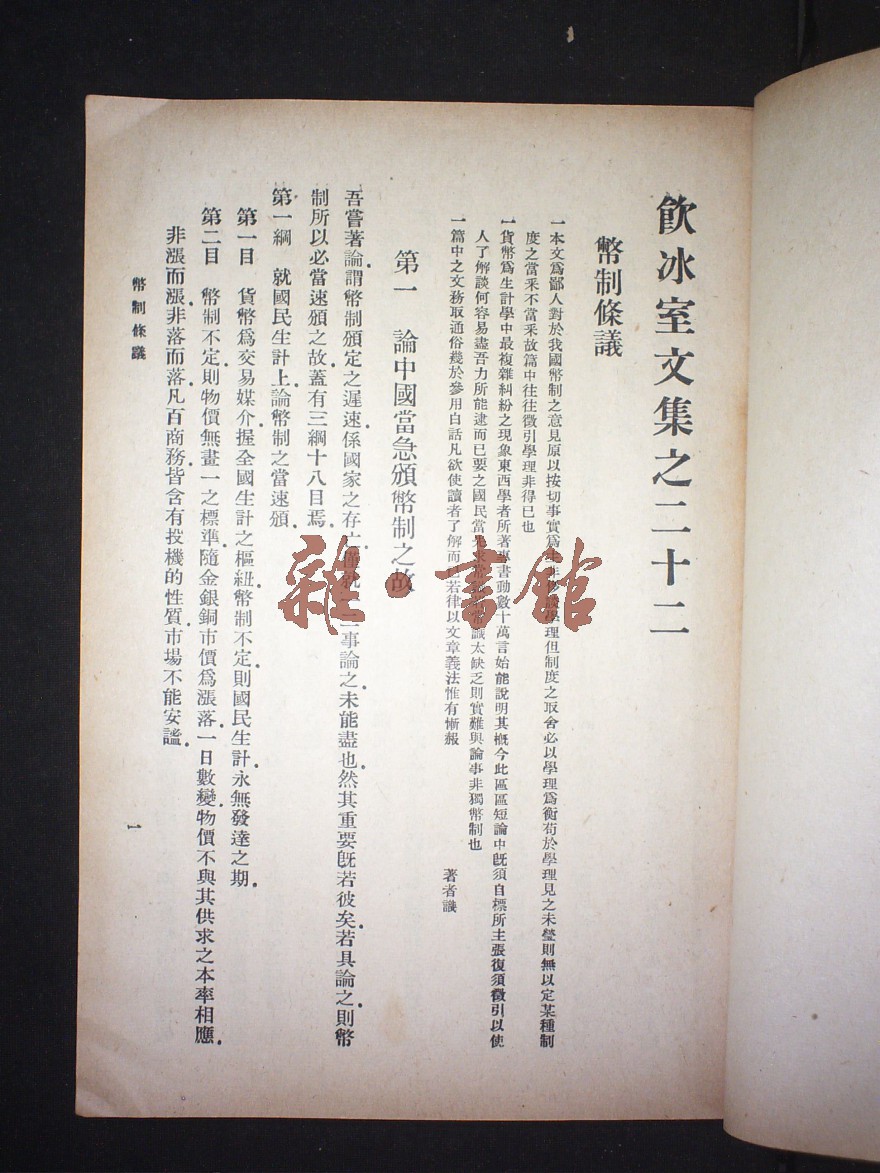 飲冰室文集之二十二
幣制條議
一本文爲鄙人對於我國幣制之意見原以按切事實爲主非侈談學理但制度之取舍必以學理爲衡苟於學理見之未瑩則無以定某種制
度之當采不當采故篇中往往徵引學理非得已也
一貨幣爲生計學中最複雜糾紛之現象東西學者所著專書動數十萬言始能說明其槪今此區區短論中旣須自標所主張復須徵引以使
人了解談何容易盡吾力所能逮而已要之國民當常識太缺乏則實難與論事非獨幣制也
一篇中之文務取通俗幾於參用白話凡欲使讀者了解而已若律以文章義法惟有慚報
著者識
第一 論中國當急頒幣制之故
吾嘗著論謂幣制頒定之遲速係國家之存亡僅就一事論之未能盡也然其重要旣若彼矣若具論之則幣
制所以必當速頒之故蓋有三綱十八目焉
第一綱 就國民生計上論幣制之當速頒
第一目 貨幣爲交易媒介握全國生計之樞紐幣制不定則國民生計永無發達之期
第二目 幣制不定則物價無畫一之標準隨金銀銅市價爲漲落一日數變物價不與其供求之本率相應
非漲而漲非落而落凡百商務皆含有投機的性質市場不能安謐
幣制條議
一
雜·書館